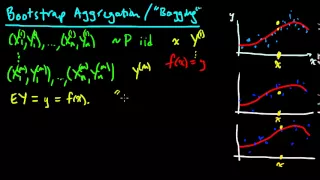 Bootstrap Aggregation / "Bagging"
(X₁⁽¹⁾, Y₁⁽¹⁾), ..., (Xₙ⁽¹⁾, Yₙ⁽¹⁾) ~ P iid x Y⁽¹⁾
⋮ ⋮
f(x) = y
(X₁⁽ᵐ⁾, Y₁⁽ᵐ⁾), ..., (Xₙ⁽ᵐ⁾, Yₙ⁽ᵐ⁾) Y⁽ᵐ⁾
EY = y = f(x). "
y
x
x
x